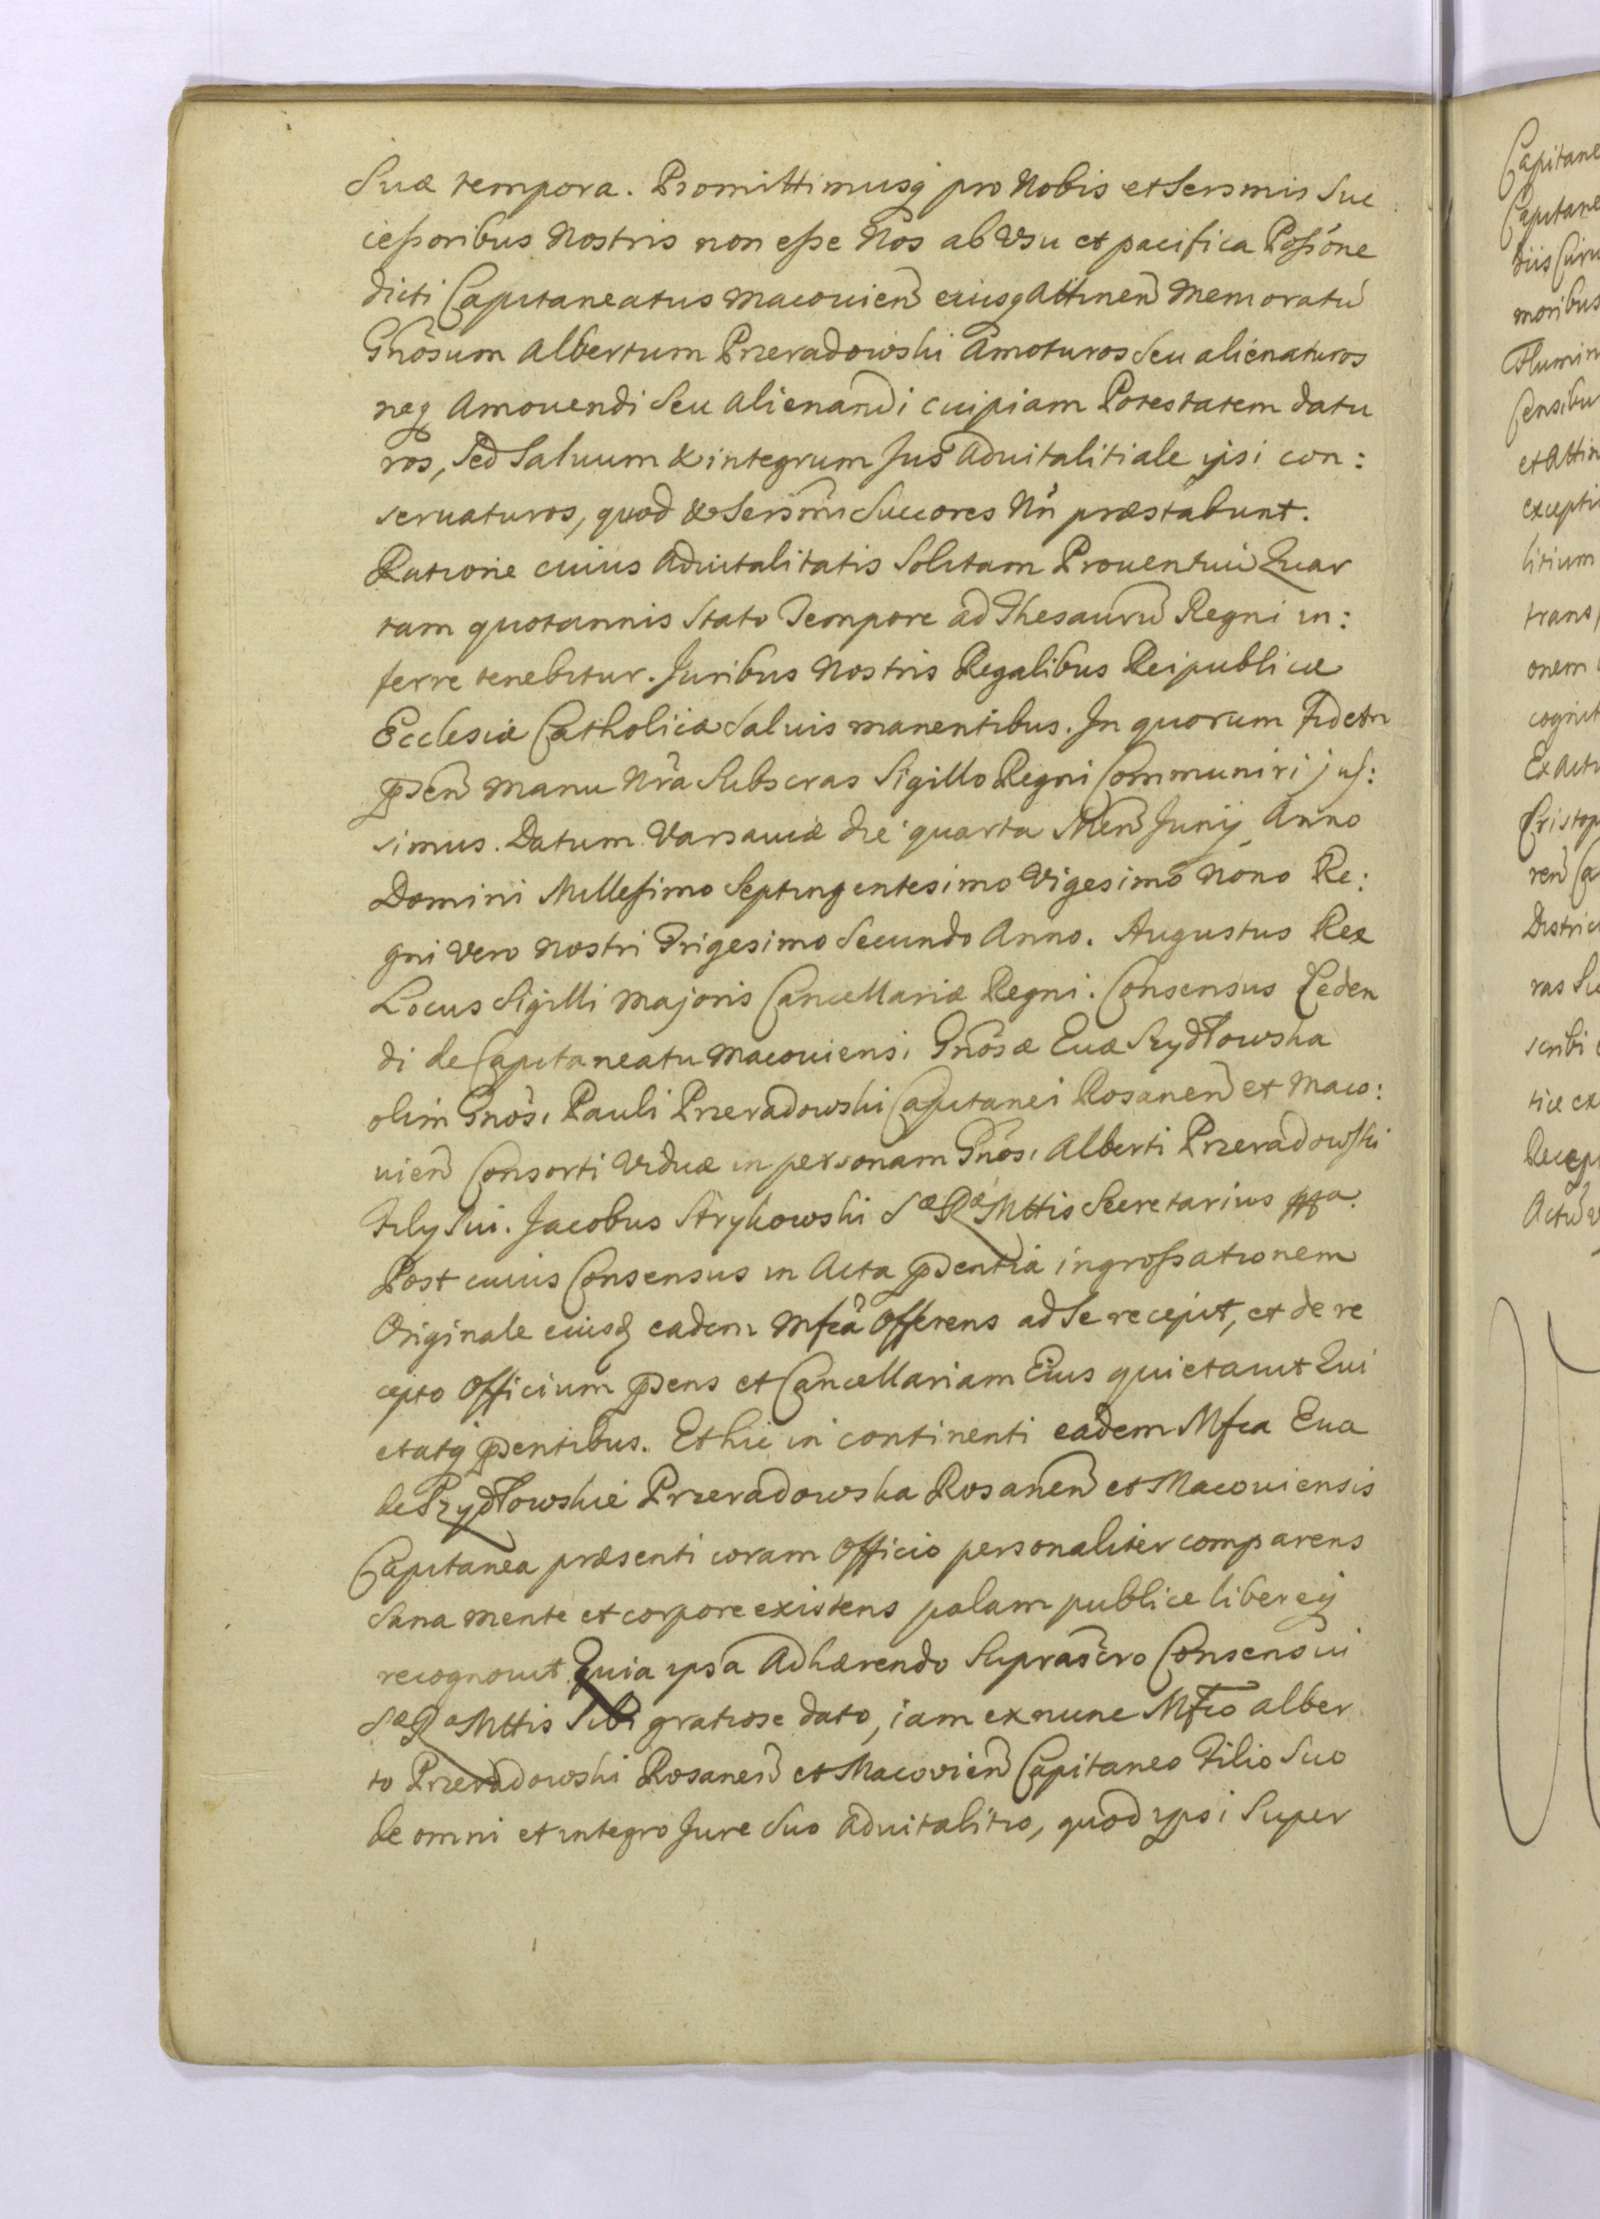 Suæ tempora. Promittimusq pro Nobis et Sersmis Suc
cessoribus Nostris non esse Nos ab Vsu et pacifica Possone
dicti Capitaneatus Macouien eiusq Attinen Memoratu
Gnosum Albertum Przeradowski Amoturos Seu alienaturos
neq Amouendi Seu Alienandi cuipiam Potestatem datu
ros, Sed Saluum & integrum Jus Aduitalitiale ipsi con:
seruaturos, quod & Sersmi Succores Nri præstabunt.
Ratione cuius Aduitalitatis Solitam Prouentuu Quar
tam quotannis Stato Tempore ad Thesauru Regni in:
ferre tenebitur. Juribus Nostris Regalibus Reipublicæ
Ecclesiæ Catholicæ Saluis manentibus. In quorum Fidem
pden manu Nra Subscras Sigillo Regni Communiri jus:
simus. Datum Varsauiæ die quarta Men Junij Anno
Domini Millesimo Septingentesimo Vigesimo Nono Re:
gni Vero Nostri Trigesimo Secundo Anno. Augustus Rex
Locus Sigilli Majoris Cancellariæ Regni. Consensus Ceden
di de Capitaneatu Macouiensi Gnosæ Euæ Szydłowska
olim Gnosi Pauli Przeradowski Capitanei Rosanen et Maco:
uien Consorti Viduæ in personam Gnosi Alberti Przeradowski
Filij Sui. Jacobus Strykowski Sæ Ræ Mttis Secretarius
Post cuius Consensus in Acta pdentia ingrossationem
Originale eiusd eadem Mfca Offerens ad Se recepit, et de re
cepto Officium pdens et Cancellariam Eius quietauit Qui
etatq pdentibus. Et hic in continenti eadem Mfca Eua
de Szydłowskie Przeradowska Rosanen et Macouiensis
Capitanea præsenti coram Officio personaliter comparens
Sana mente et corpore existens palam publice libereq
recognouit Quia ipsa Adhærendo Suprascro Consensui
Sæ Ræ Mttis Sibi gratiose dato, iam ex nunc Mfco Alber
to Przeradowski Rosanen et Macovien Capitaneo Filio Suo
de omni et integro Jure Suo Aduitalitio, quod ipsi Super